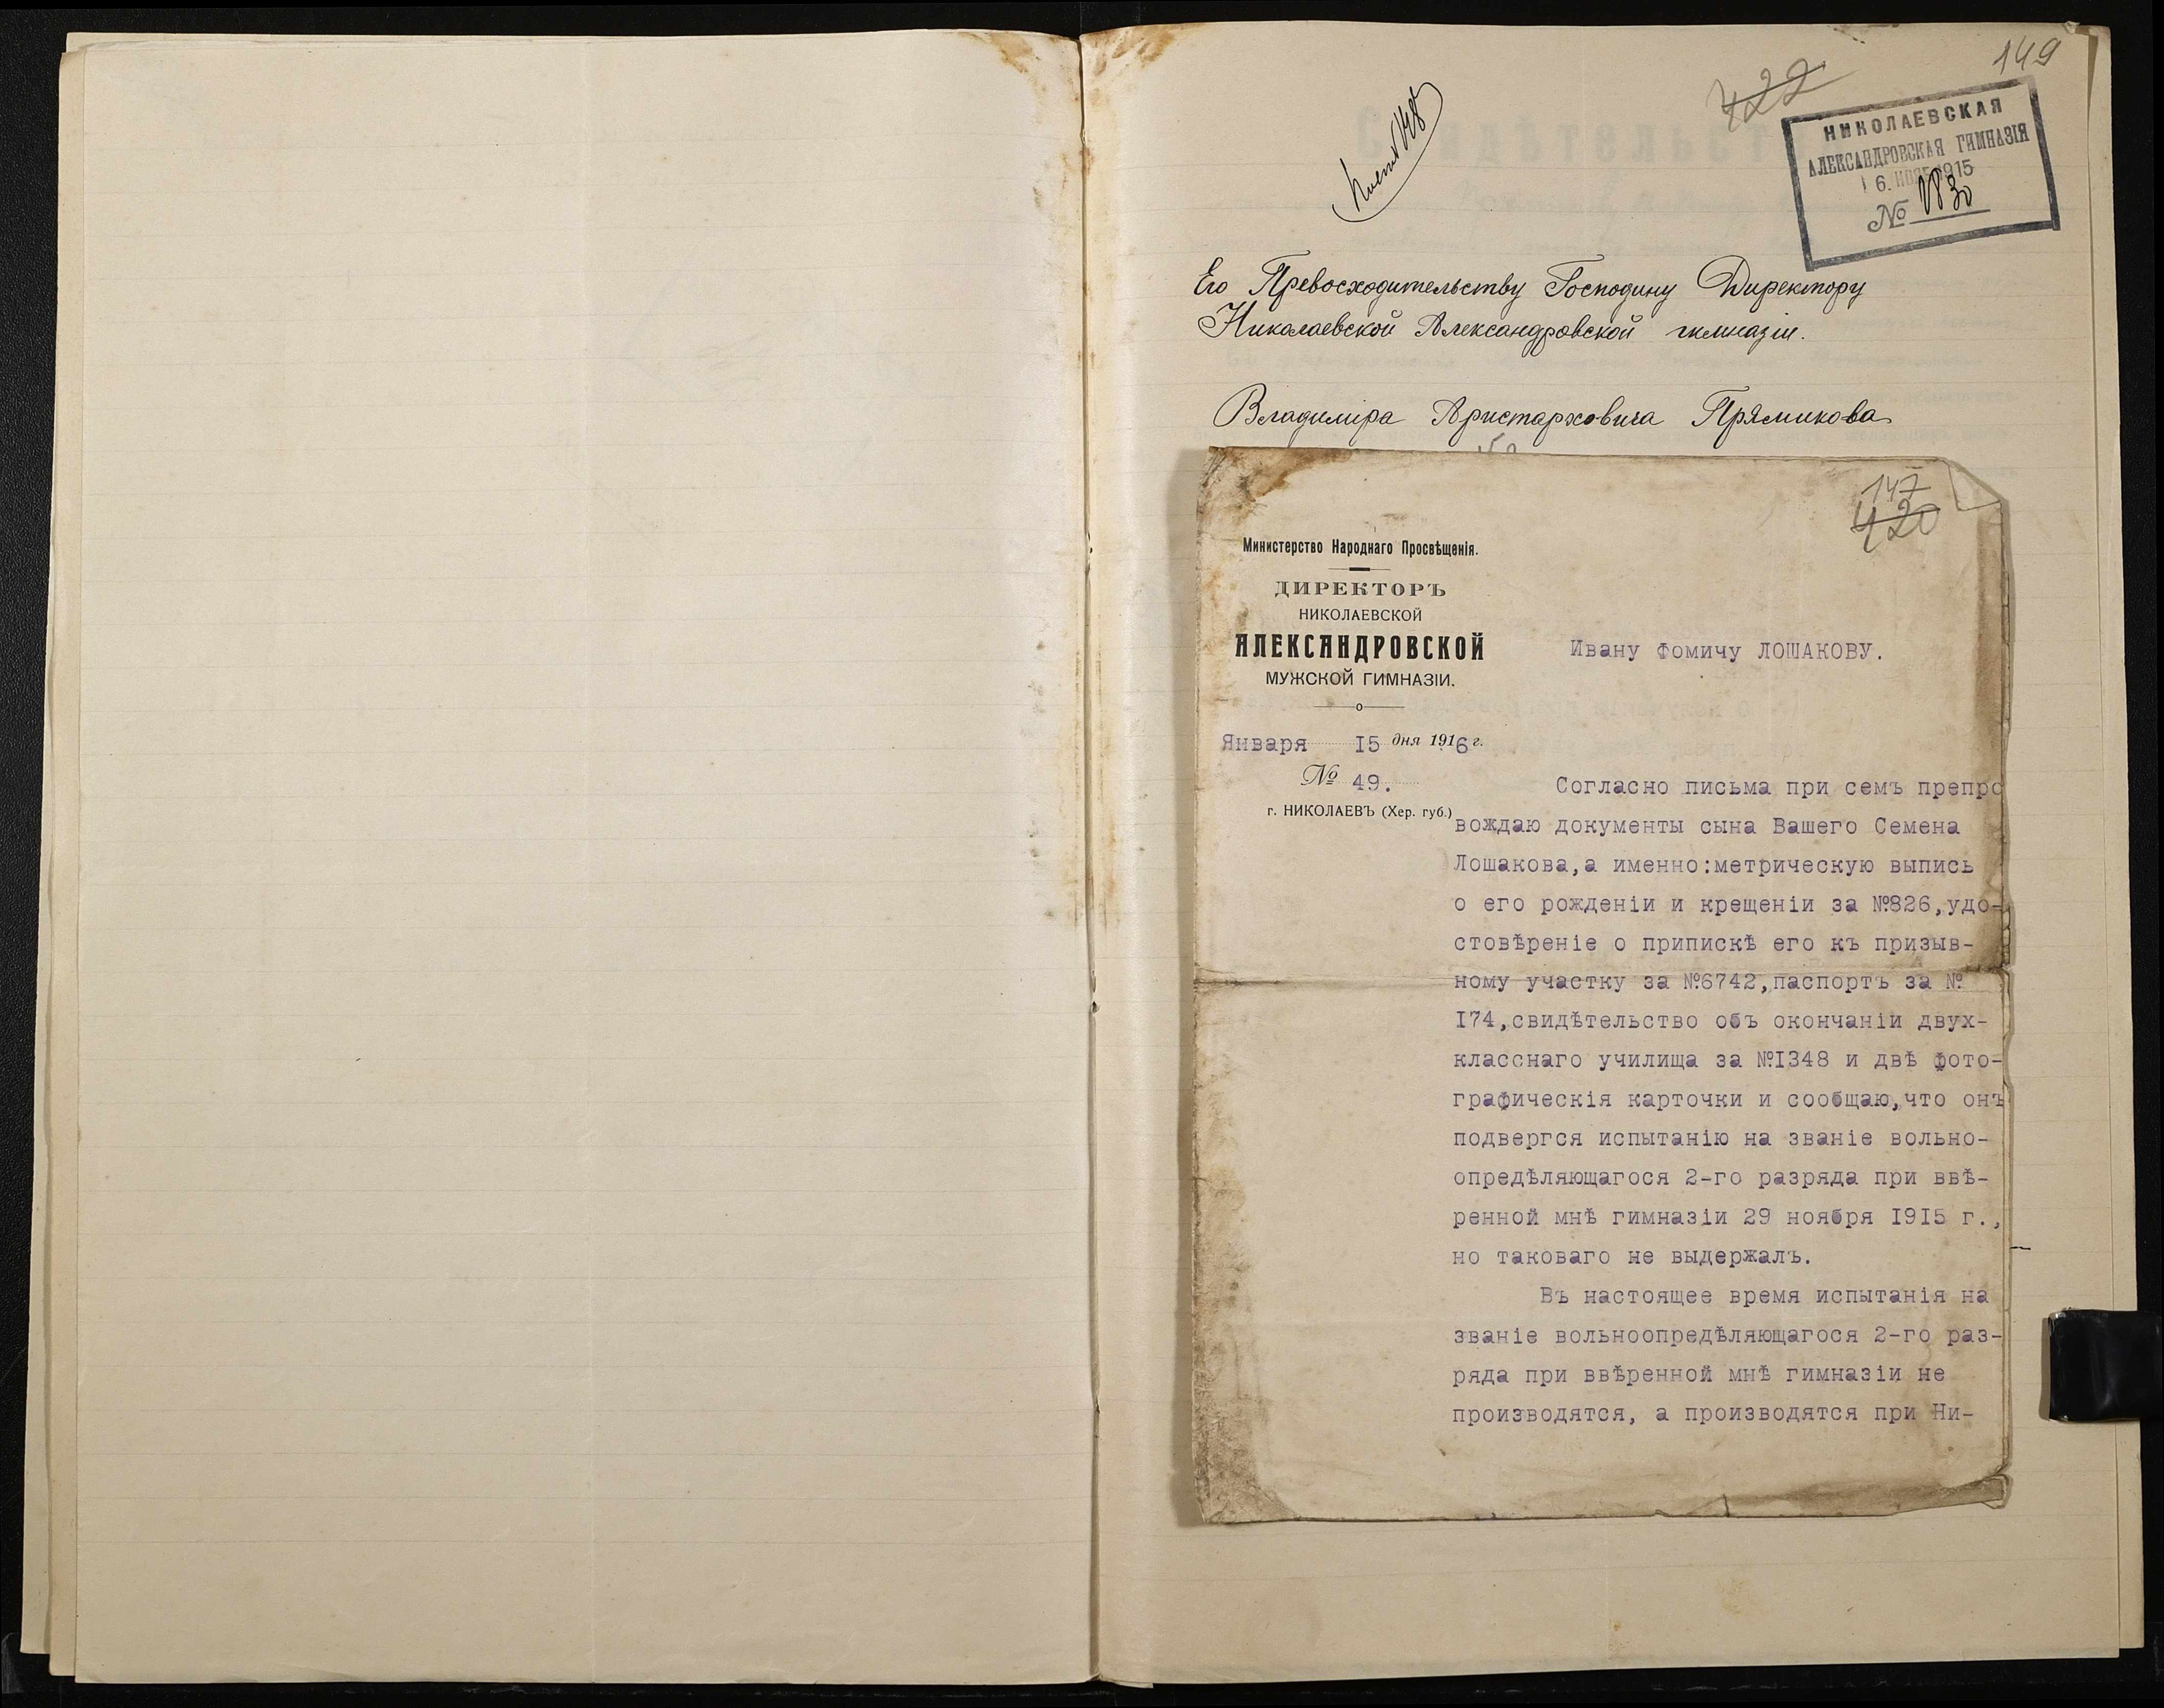 149
422
НИКОЛАЕВСКАЯ
АЛЕКСАНДРОВСКАЯ ГИМНАЗІЯ
16. НОЯБ 1915
№ 1830
Его Превосходительству Господину Директору
Николаевской Александровской гимназіи.
Владиміра Аристарховича Прямикова
147
420
Министерство Народнаго Просвѣщенія.
ДИРЕКТОРЪ
НИКОЛАЕВСКОЙ
АЛЕКСАНДРОВСКОЙ
МУЖСКОЙ ГИМНАЗІИ.
Января 15 дня 1916 г.
№ 49.
г. НИКОЛАЕВЪ (Хер. губ.)
Ивану Фомичу ЛОШАКОВУ.
Согласно письма при семъ препро
вождаю документы сына Вашего Семена
Лошакова,а именно:метрическую выпись
о его рожденіи и крещеніи за №826,удо-
стовѣреніе о припискѣ его къ призыв-
ному участку за №6742,паспортъ за №
I74,свидѣтельство объ окончаніи двух-
класснаго училища за №I348 и двѣ фото-
графическія карточки и сообщаю,что онъ
подвергся испытанію на званіе вольно-
опредѣляющагося 2-го разряда при ввѣ-
ренной мнѣ гимназіи 29 ноября I9I5 г.,
но таковаго не выдержалъ.
Въ настоящее время испытанія на
званіе вольноопредѣляющагося 2-го раз-
ряда при ввѣренной мнѣ гимназіи не
производятся, а производятся при Ни-